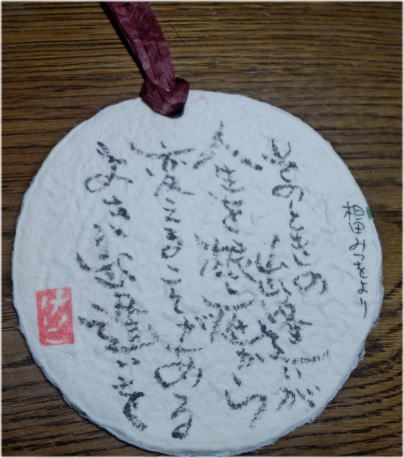 相田みつをより
そのときの
出逢いが
人生を根底から
変えることがある
よき出逢いを